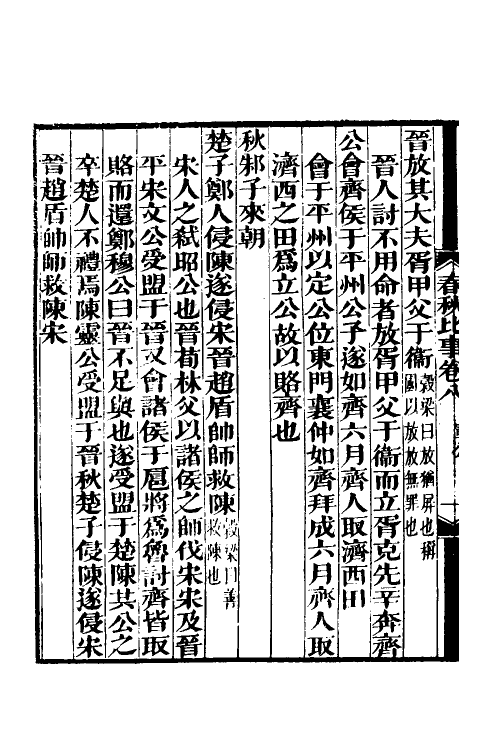 晉放其大夫胥甲父于衞穀梁曰放猶屏也稱國以放放無罪也
晉人討不用命者放胥甲父于衞而立胥克先辛奔齊
公會齊侯于平州公子遂如齊六月齊人取濟西田
會于平州以定公位東門襄仲如齊拜成六月齊人取
濟西之田爲立公故以賂齊也
秋邾子來朝
楚子鄭人侵陳遂侵宋晉趙盾帥師救陳穀梁曰善救陳也
宋人之弒昭公也晉荀林父以諸侯之師伐宋宋及晉
平宋文公受盟于晉又會諸侯于扈將爲魯討齊皆取
賂而還鄭穆公曰晉不足與也遂受盟于楚陳共公之
卒楚人不禮焉陳靈公受盟于晉秋楚子侵陳遂侵宋
晉趙盾帥師救陳宋
春秋比事卷八